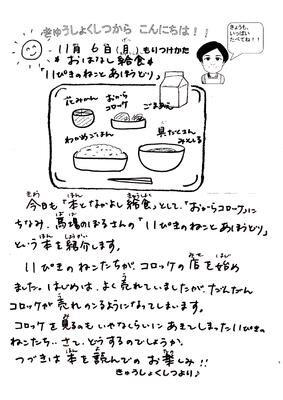 きゅうしょくしつから こんにちは!!
きょうも、
いっぱい
たべてね!!
11月 6日(月) もりつけかた
*おはなし給食*
「11ぴきのねことあほうどり」
花みかん
おから
コロッケ
ごまあえ
わかめごはん
具だくさん
みそしる
今日も「本となかよし給食」として、「おからコロッケ」に
ちなみ、馬場のぼるさんの「11ぴきのねことあほうどり」
という本を紹介します。
11ぴきのねこたちが、コロッケの店を始め
ました。はじめは、よく売れていましたが、だんだん
コロッケが売れのこるようになってしまいます。
コロッケを見るのもいやなくらいにあきてしまった11ぴきの
ねこたち…さて、どうするのでしょうか。
つづきは本を読んでのお楽しみ!!
きゅうしょくしつより♪